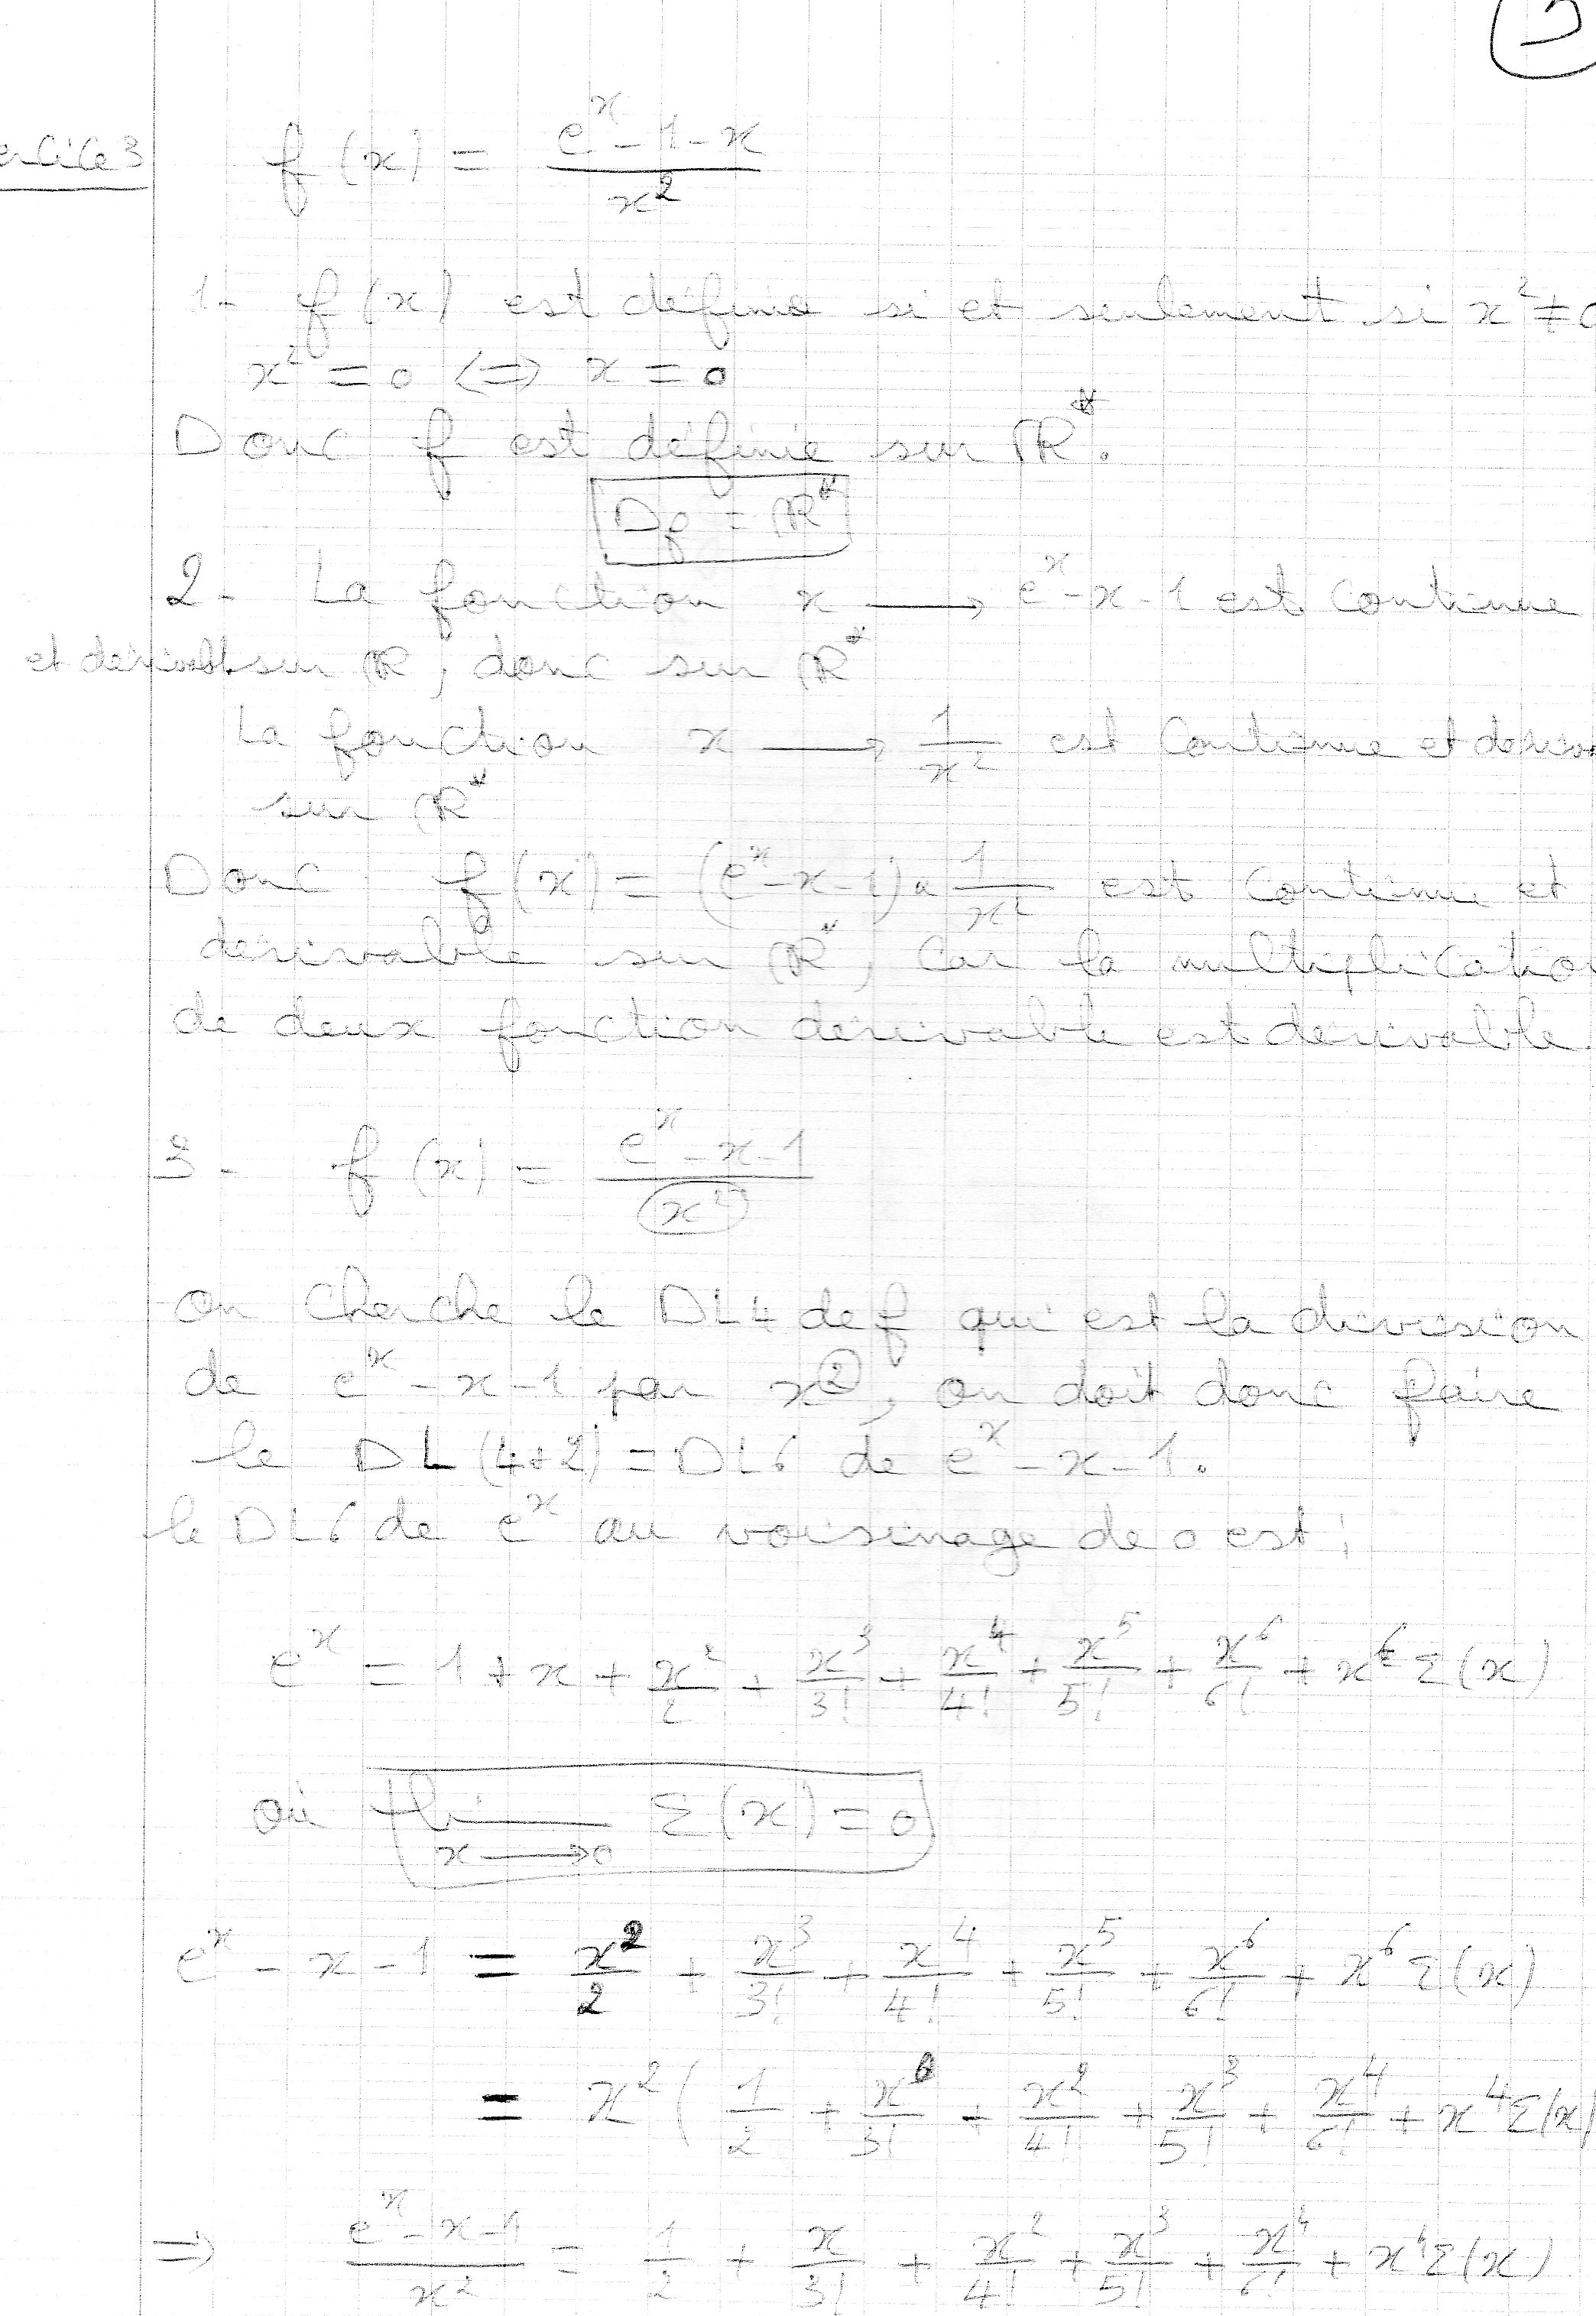 ercice 3 f(x) = (e^x - 1 - x) / x^2
1- f(x) est définie si et seulement si x^2 ≠ 0
x^2 = 0 <=> x = 0
Donc f est définie sur ℝ*.
Df = ℝ*
2- La fonction x → e^x - x - 1 est continue
et derivable sur ℝ, donc sur ℝ*
La fonction x → 1/x^2 est continue et deriva
sur ℝ*
Donc f(x) = (e^x - x - 1) × 1/x^2 est continue et
derivable sur ℝ*, car la multiplication
de deux fonction derivable est derivable.
3- f(x) = (e^x - x - 1) / x^2
on cherche le DL4 de f qui est la division
de e^x - x - 1 par x^2, on doit donc faire
le DL(4+2) = DL6 de e^x - x - 1.
le DL6 de e^x au voisinage de 0 est:
e^x = 1 + x + x^2/2 + x^3/3! + x^4/4! + x^5/5! + x^6/6! + x^6 Σ(x)
où lim x→0 Σ(x) = 0
e^x - x - 1 = x^2/2 + x^3/3! + x^4/4! + x^5/5! + x^6/6! + x^6 Σ(x)
= x^2 ( 1/2 + x/3! + x^2/4! + x^3/5! + x^4/6! + x^4 Σ(x)
=> (e^x - x - 1) / x^2 = 1/2 + x/3! + x^2/4! + x^3/5! + x^4/6! + x^4 Σ(x)